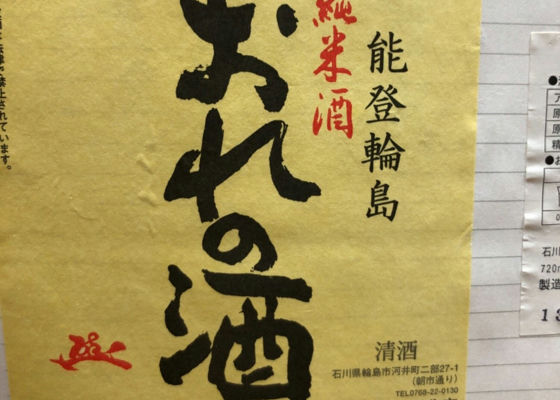 能登輪島
純米酒
おれの酒
は法律で禁止されています。
清酒
石川県輪島市河井町二部27-1
(朝市通り)
TEL0768-22-0130
石川
720m
製造
13